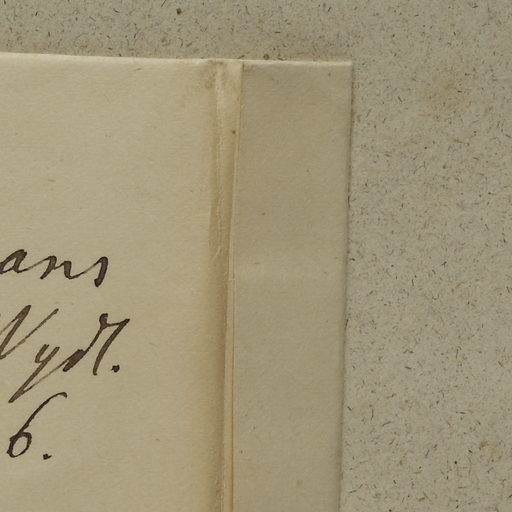 ans
Nydl.
6.